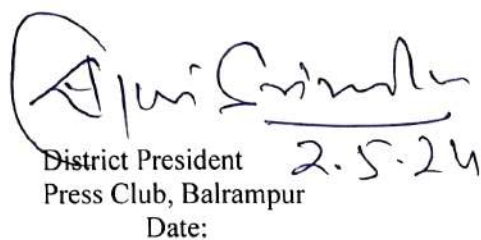 District President
2.5.24
Press Club, Balrampur
Date: